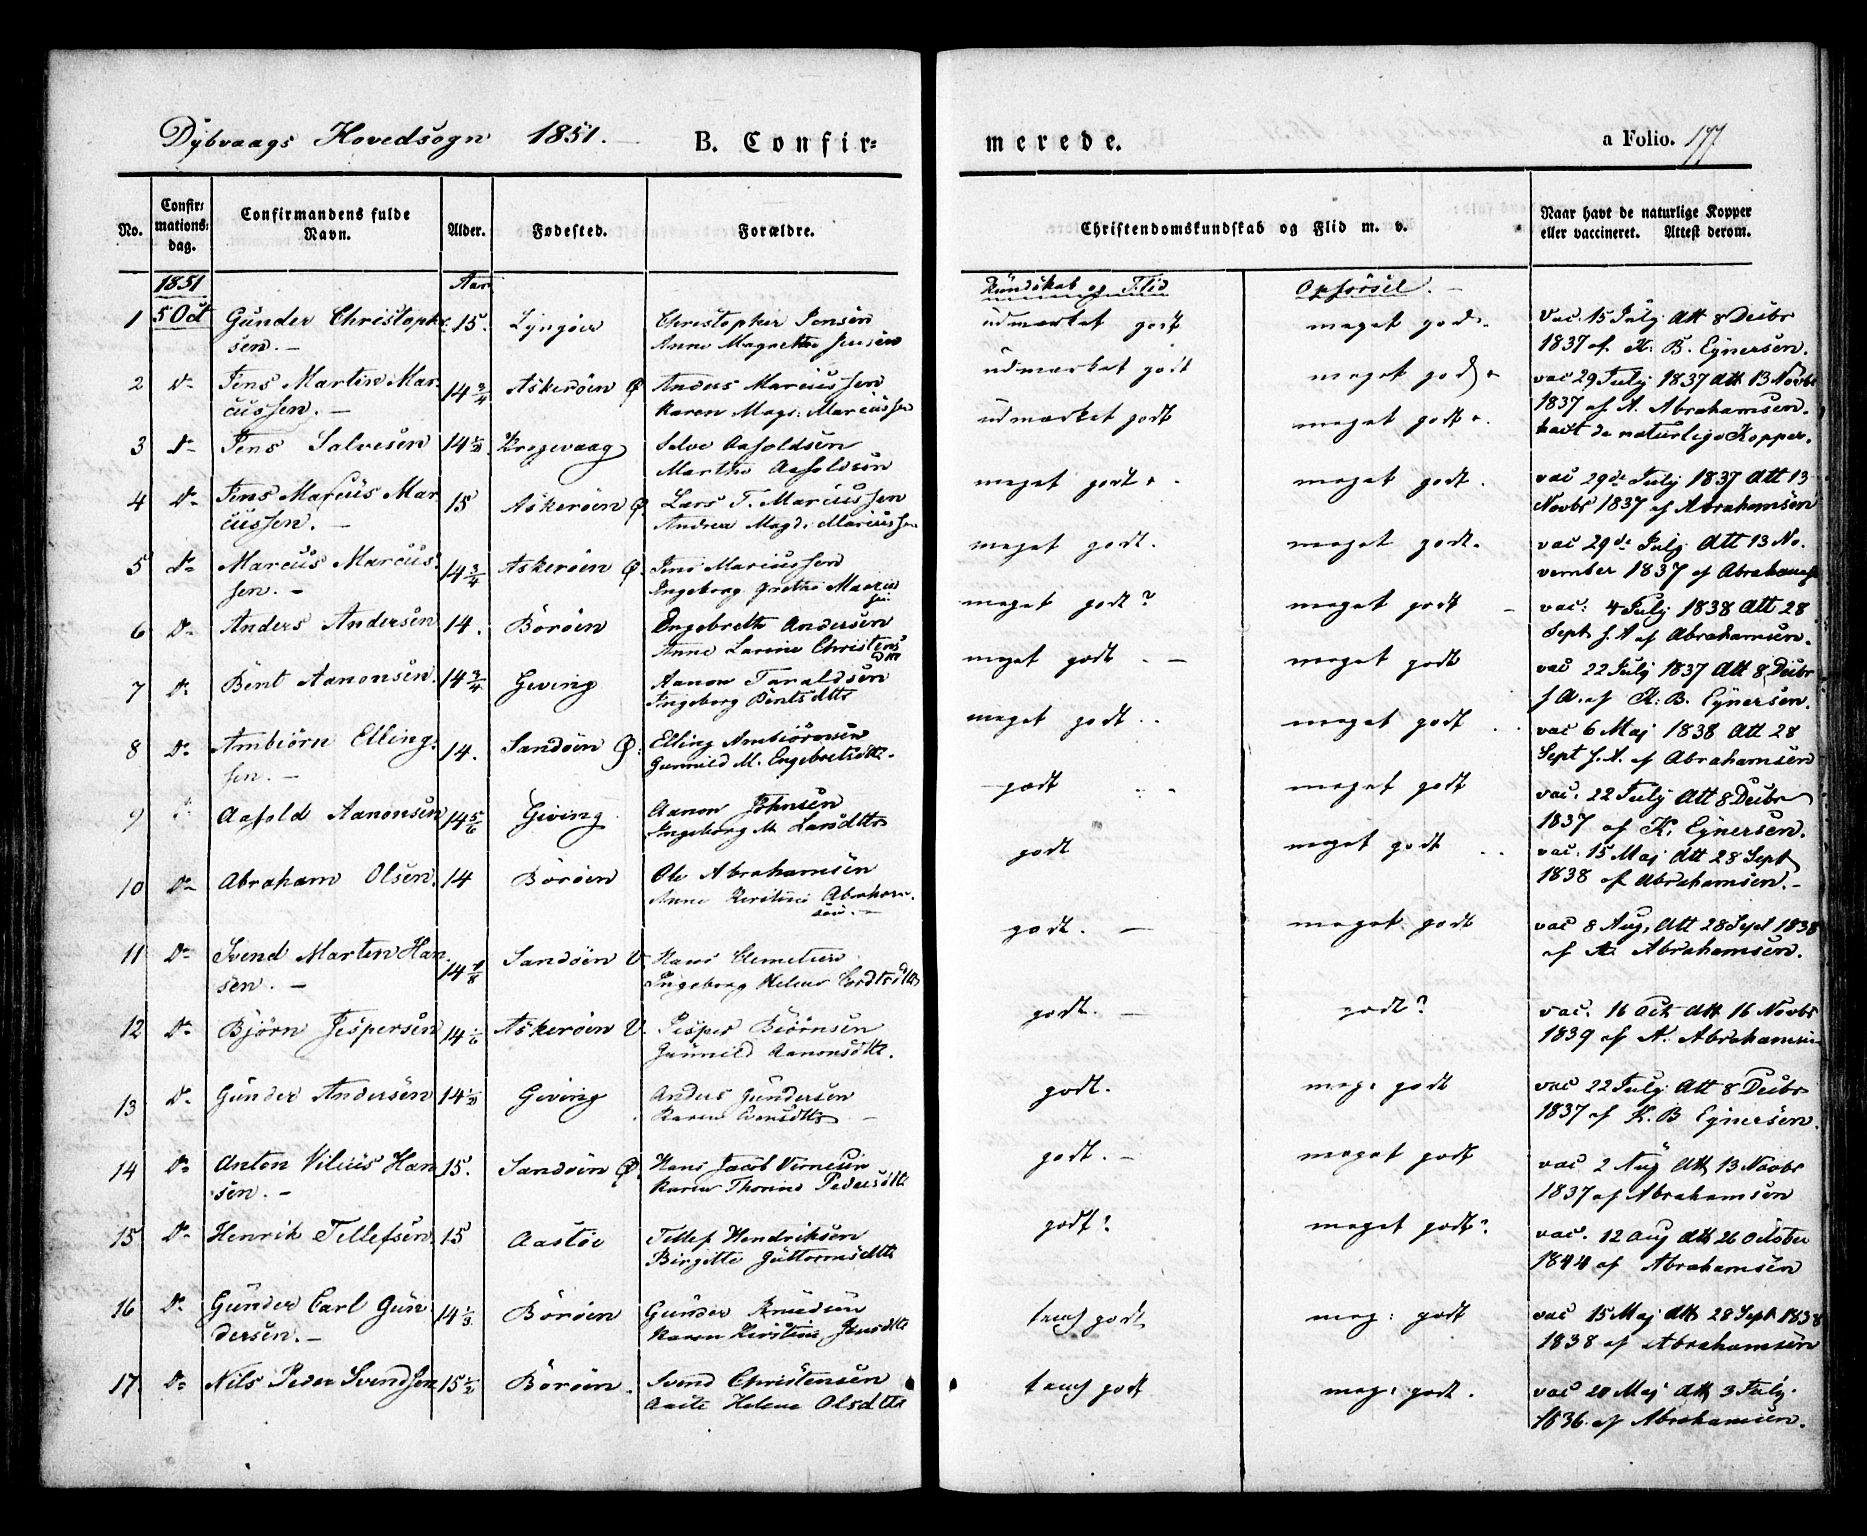 Dybvaags Hovedsogn 1851. B. Confir=
merede.
a Folio. 177
No.
Confir=
mations=
dag.
Confirmandens fulde
Navn.
Alder.
Fødested.
Forældre.
Christendomskundskab og Flid m. v.
Naar havt de naturlige Kopper
eller vaccineret. Attest derom.
1851
Aar
Kundskab og Flid
Opförsel. -
1 5 Oct Gunder Christoph- 15. Lyngöer Christopher Jensen udmærket godt meget godt. Vac. 15 July Att 8 Decbr
sen. - Anne Magrethe Jensen 1837 af K. B. Eynersen.
2 Do Jens Martin Mar- 14 3/4 Askeröen Ø Anders Marcussen udmærket godt meget godt. vac 29 July 1837 Att 13 Novbr
cussen. - Karen Magd: Marcussen 1837 af A. Abrahamsen.
3 Do Jens Salvesen 14 1/2 Krogevaag Selve Aasoldsen udmærket godt meget godt. havt de naturlige Kopper.
Marthe Aasoldsen
4 Do Jens Marcus Mar 15 Askeröen Ø Lars T. Marcussen meget godt. meget godt. vac 29de July 1837 Att 13
cussen. - Andrea Magd: Marcussen Novbr 1837 af Abrahamsen
5 Do Marcus Marcus- 14 3/4 Askeröen Ø. Jens Marcussen meget godt. meget godt. vac 29de July Att 13 No-
sen. - Ingeborg Grethe Marcussen vember 1837 af Abrahams
6 Do Anders Andersen 14. Boröen Engebreth Andersen meget godt? meget godt - vac: 4 July 1838 Att 28
Anne Larine Christensdtt Sept s. A. af Abrahamsen.
7 Do Bent Aanonsen. 14 3/4 Geving Aanon Taraldsen meget godt. - meget godt vac 22 July 1837 Att 8 Decbr
Ingeborg Bentsdtt s. A. af K. B. Eynersen.
8 Do Ambiörn Elling- 14. Sandöen Ø. Elling Ambiörnsen meget godt. meget godt. vac 6 Maj 1838 Att 28
sen. - Gunnild M. Engebretsdtt. Sept s. A. af Abrahamsen
9 Aasold Aanonsen 14 5/6 Geving. Aanon Johnsen godt meget godt vac. 22 July Att 8 Decbr
Ingeborg M. Larsdtt 1837 af K. Eynersen.
10 Do Abraham Olsen. 14 Boröen Ole Abrahamsen godt meget godt vac. 15 Maj Att 28 Sept
Anne Kirstine Abraham-
sen. - 1838 af Abrahamsen. -
11 Do Svend Martin Han- 14 7/8 Sandöen V. Hans Clemetsen godt. - meget godt vac 8 Aug. Att 28 Sept 1838
sen. - Ingeborg Helene af A. Abrahamsen.
12 Do Björn Jespersen 14 1/6 Askeröen V. Jesper Biörnsen godt. - godt? vac. 16 Oct. Att 16 Novbr
Gunnild Aanonsdtt. 1839 af A. Abrahamsen
13 Do Gunder Andersen 14 1/2 Geving Anders Gundersen godt. meg: godt vac 22 July Att 8 Decbr
Karen Evensdtt 1837 af K. B Eynersen.
14 Do Anton Vilius Han 15. Sandöen Ø. Hans Jacob godt. - meget godt vac 2 Aug Att 13 Novbr
sen. - Karen Thorine Pedersdtt 1837 af Abrahamsen
15 Do Henrik Tellefsen. 15 Aastöe Tellef Hendriksen godt? meget godt? vac. 12 Aug Att 26 October
Birgitte Guttormsdtt 1844 af Abrahamsen
16 Do Gunder Carl Gun 14 1/3 Boröen Gunder Knudsen temf godt meg: godt vac 15 Maj Att 28 Sept 1838
dersen. - Karen Kirstine Jensdtt 1838 af Abrahamsen
17. Do Nils Peder Svendsen 15 1/2 Boröen. Svend Christensen temf godt meg: godt. vac 20 Maj Att 3 July
Aaste Helene Olsdtt 1836 af Abrahamsen.